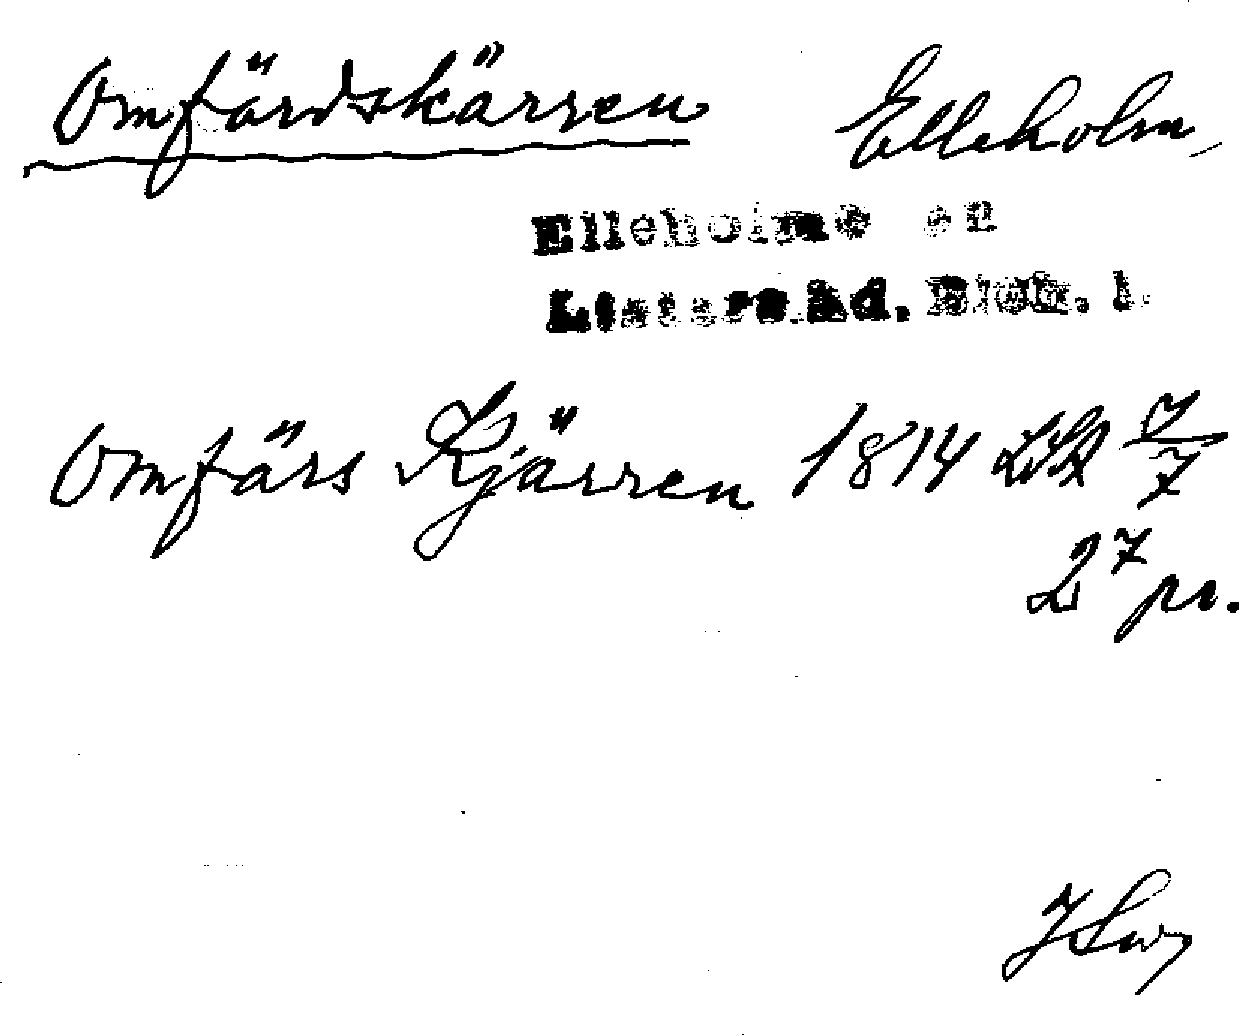 Omfärdskärren Elleholm,
Elleholms sn
Listers hd. Blek. l.
Omfärs Kjärren 1814 LSk 7/7
2 7 pr.